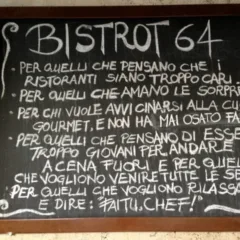 BISTROT 64
· PER QUELLI CHE PENSANO CHE i
RISTORANTI SIANO TROPPO CARI...
· PER QUELLI CHE AMANO LE SORPRE
· PER CHI VUOLE AVVICINARSI ALLA CU
GOURMET, E NON HA MAI OSATO FA
· PER QUELLI CHE PENSANO DI ESSE
TROPPO GIOVANI PER ANDARE
A CENA FUORI E PER QUELL
CHE VOGLIONO VENIRE TUTTE LE SE
PER QUELLI CHE VOGLIONO RILASSA
E DIRE: "FAI TU, CHEF!"